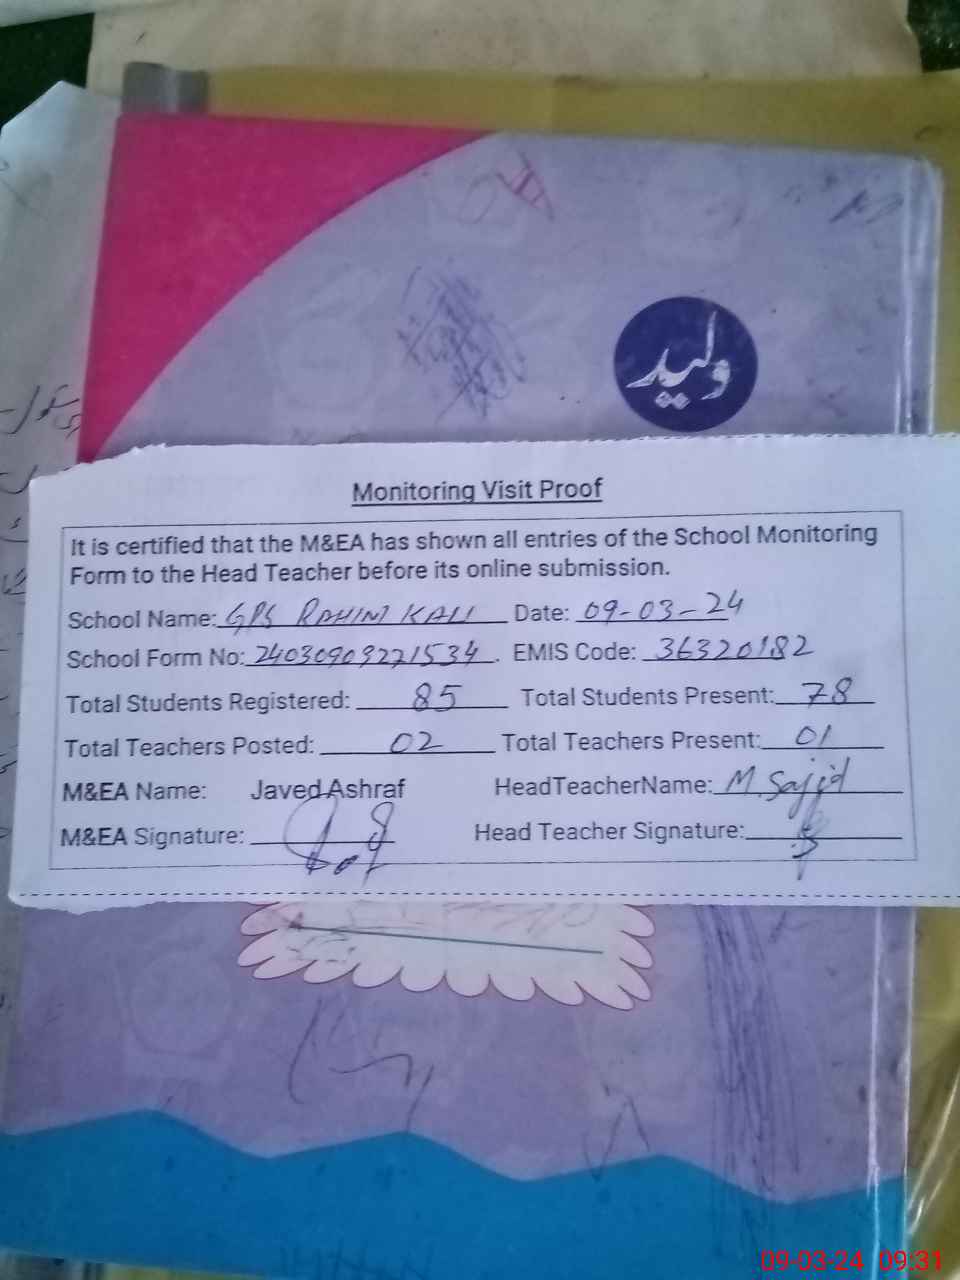 ولید
Monitoring Visit Proof
It is certified that the M&EA has shown all entries of the School Monitoring
Form to the Head Teacher before its online submission.
School Name: GPS RAHIM KALI Date: 09-03-24
School Form No: 24030903221534. EMIS Code: 36320182
Total Students Registered: 85 Total Students Present: 78
Total Teachers Posted: 02 Total Teachers Present: 01
M&EA Name: Javed Ashraf HeadTeacherName: M. Sajjd
M&EA Signature: Head Teacher Signature:
09-03-24 09:31